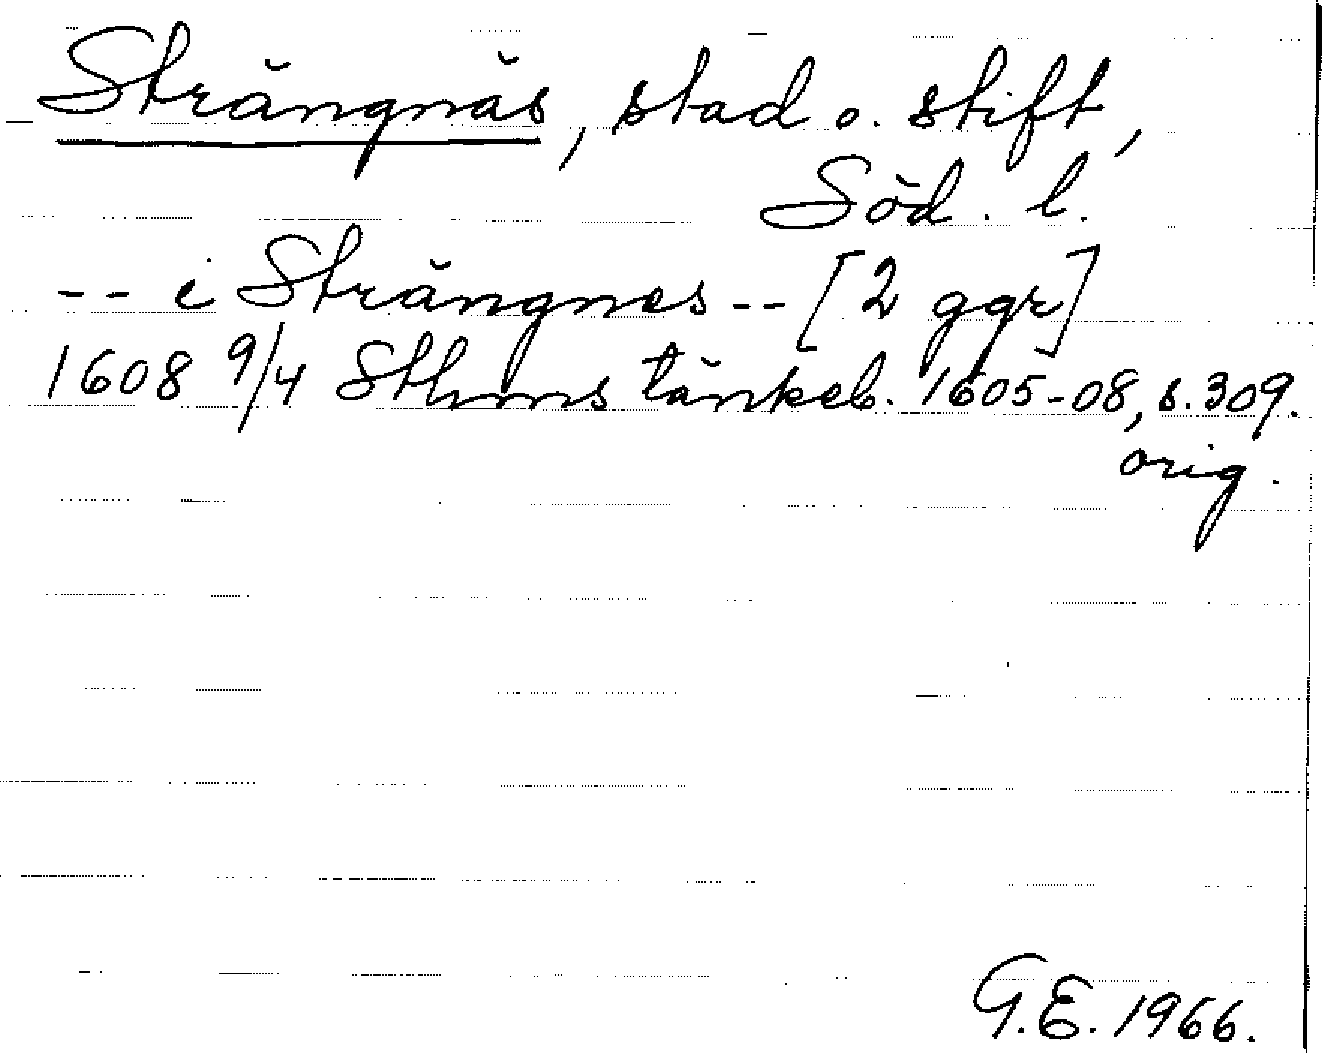 Strängnäs, stad o. stift,
Söd. l.
-- i Strängnes -- [2 ggr]
1608 9/4 Sthms tänkeb. 1605-08, s. 309.
orig.
G.E. 1966.